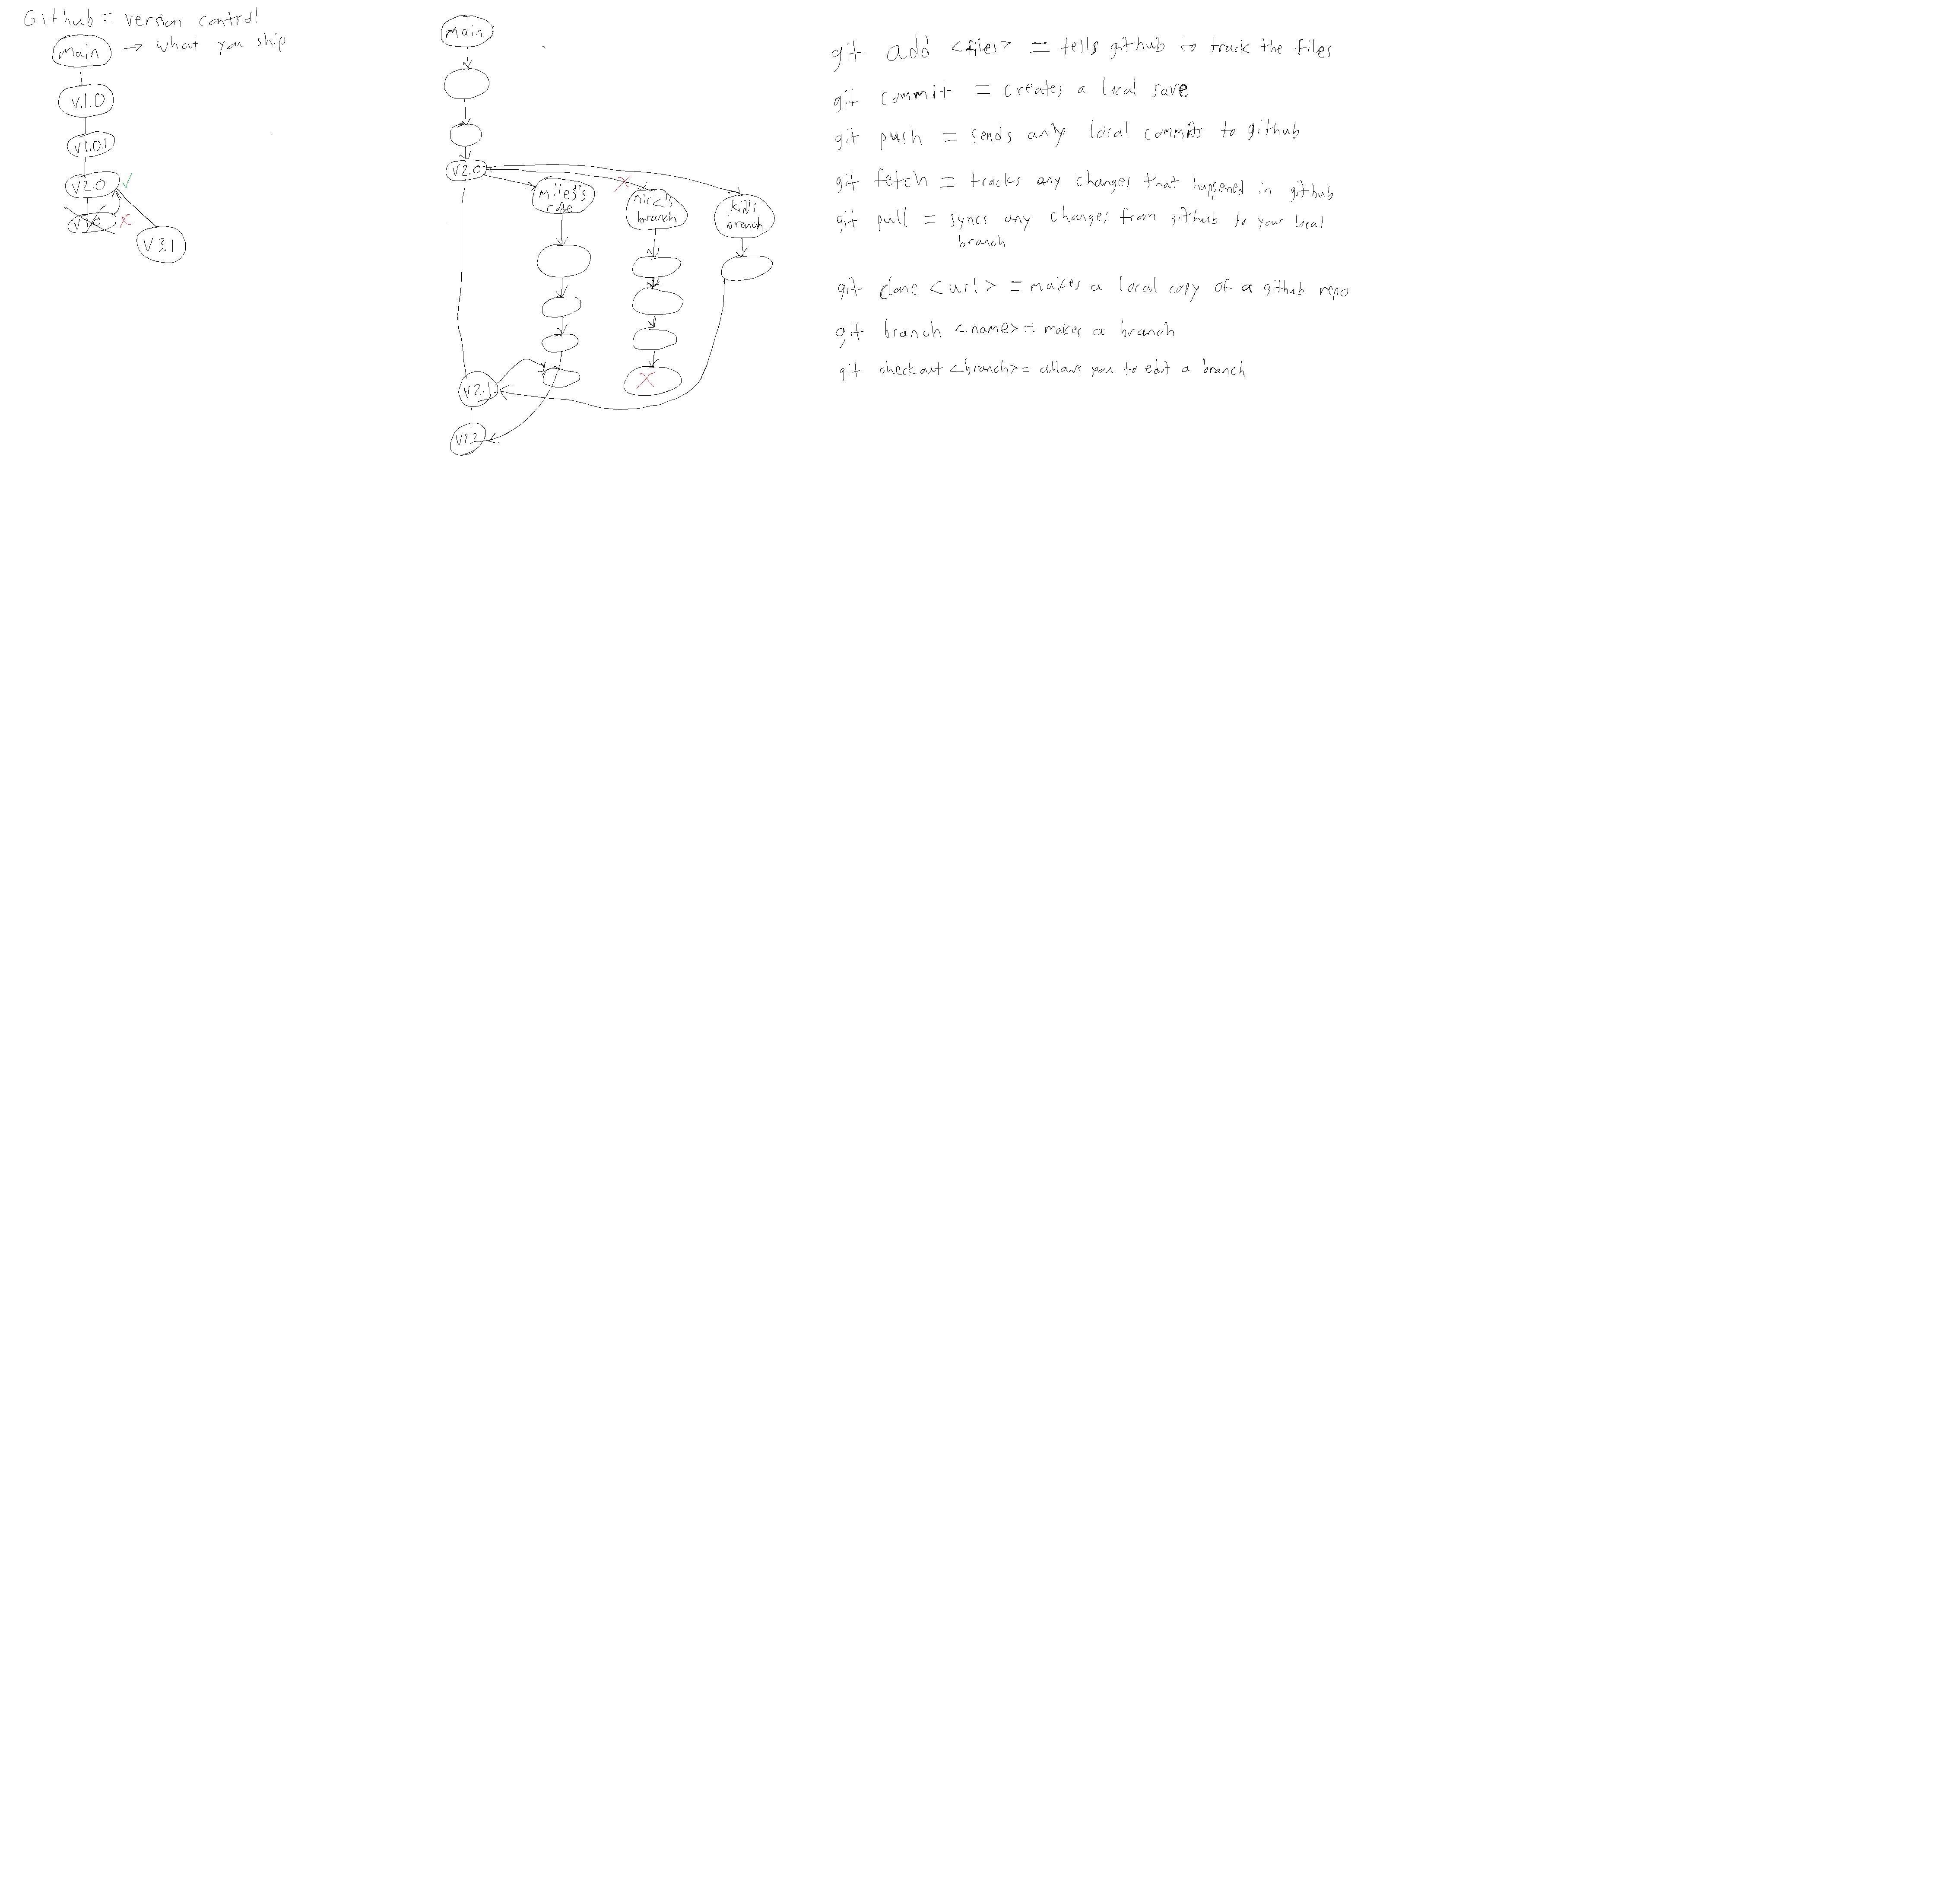 Github = version control
main → what you ship
v.1.0
v1.0.1
v2.0
v3.0
v 3.1
main
v2.0
miles's
code
nick's
branch
kid's
branch
v2.1
v2.2
git add <files> = tells github to track the files
git commit = creates a local save
git push = sends any local commits to github
git fetch = tracks any changes that happened in github
git pull = syncs any changes from github to your local
branch
git clone <url> = makes a local copy of a github repo
git branch <name> = makes a branch
git checkout <branch> = allows you to edit a branch